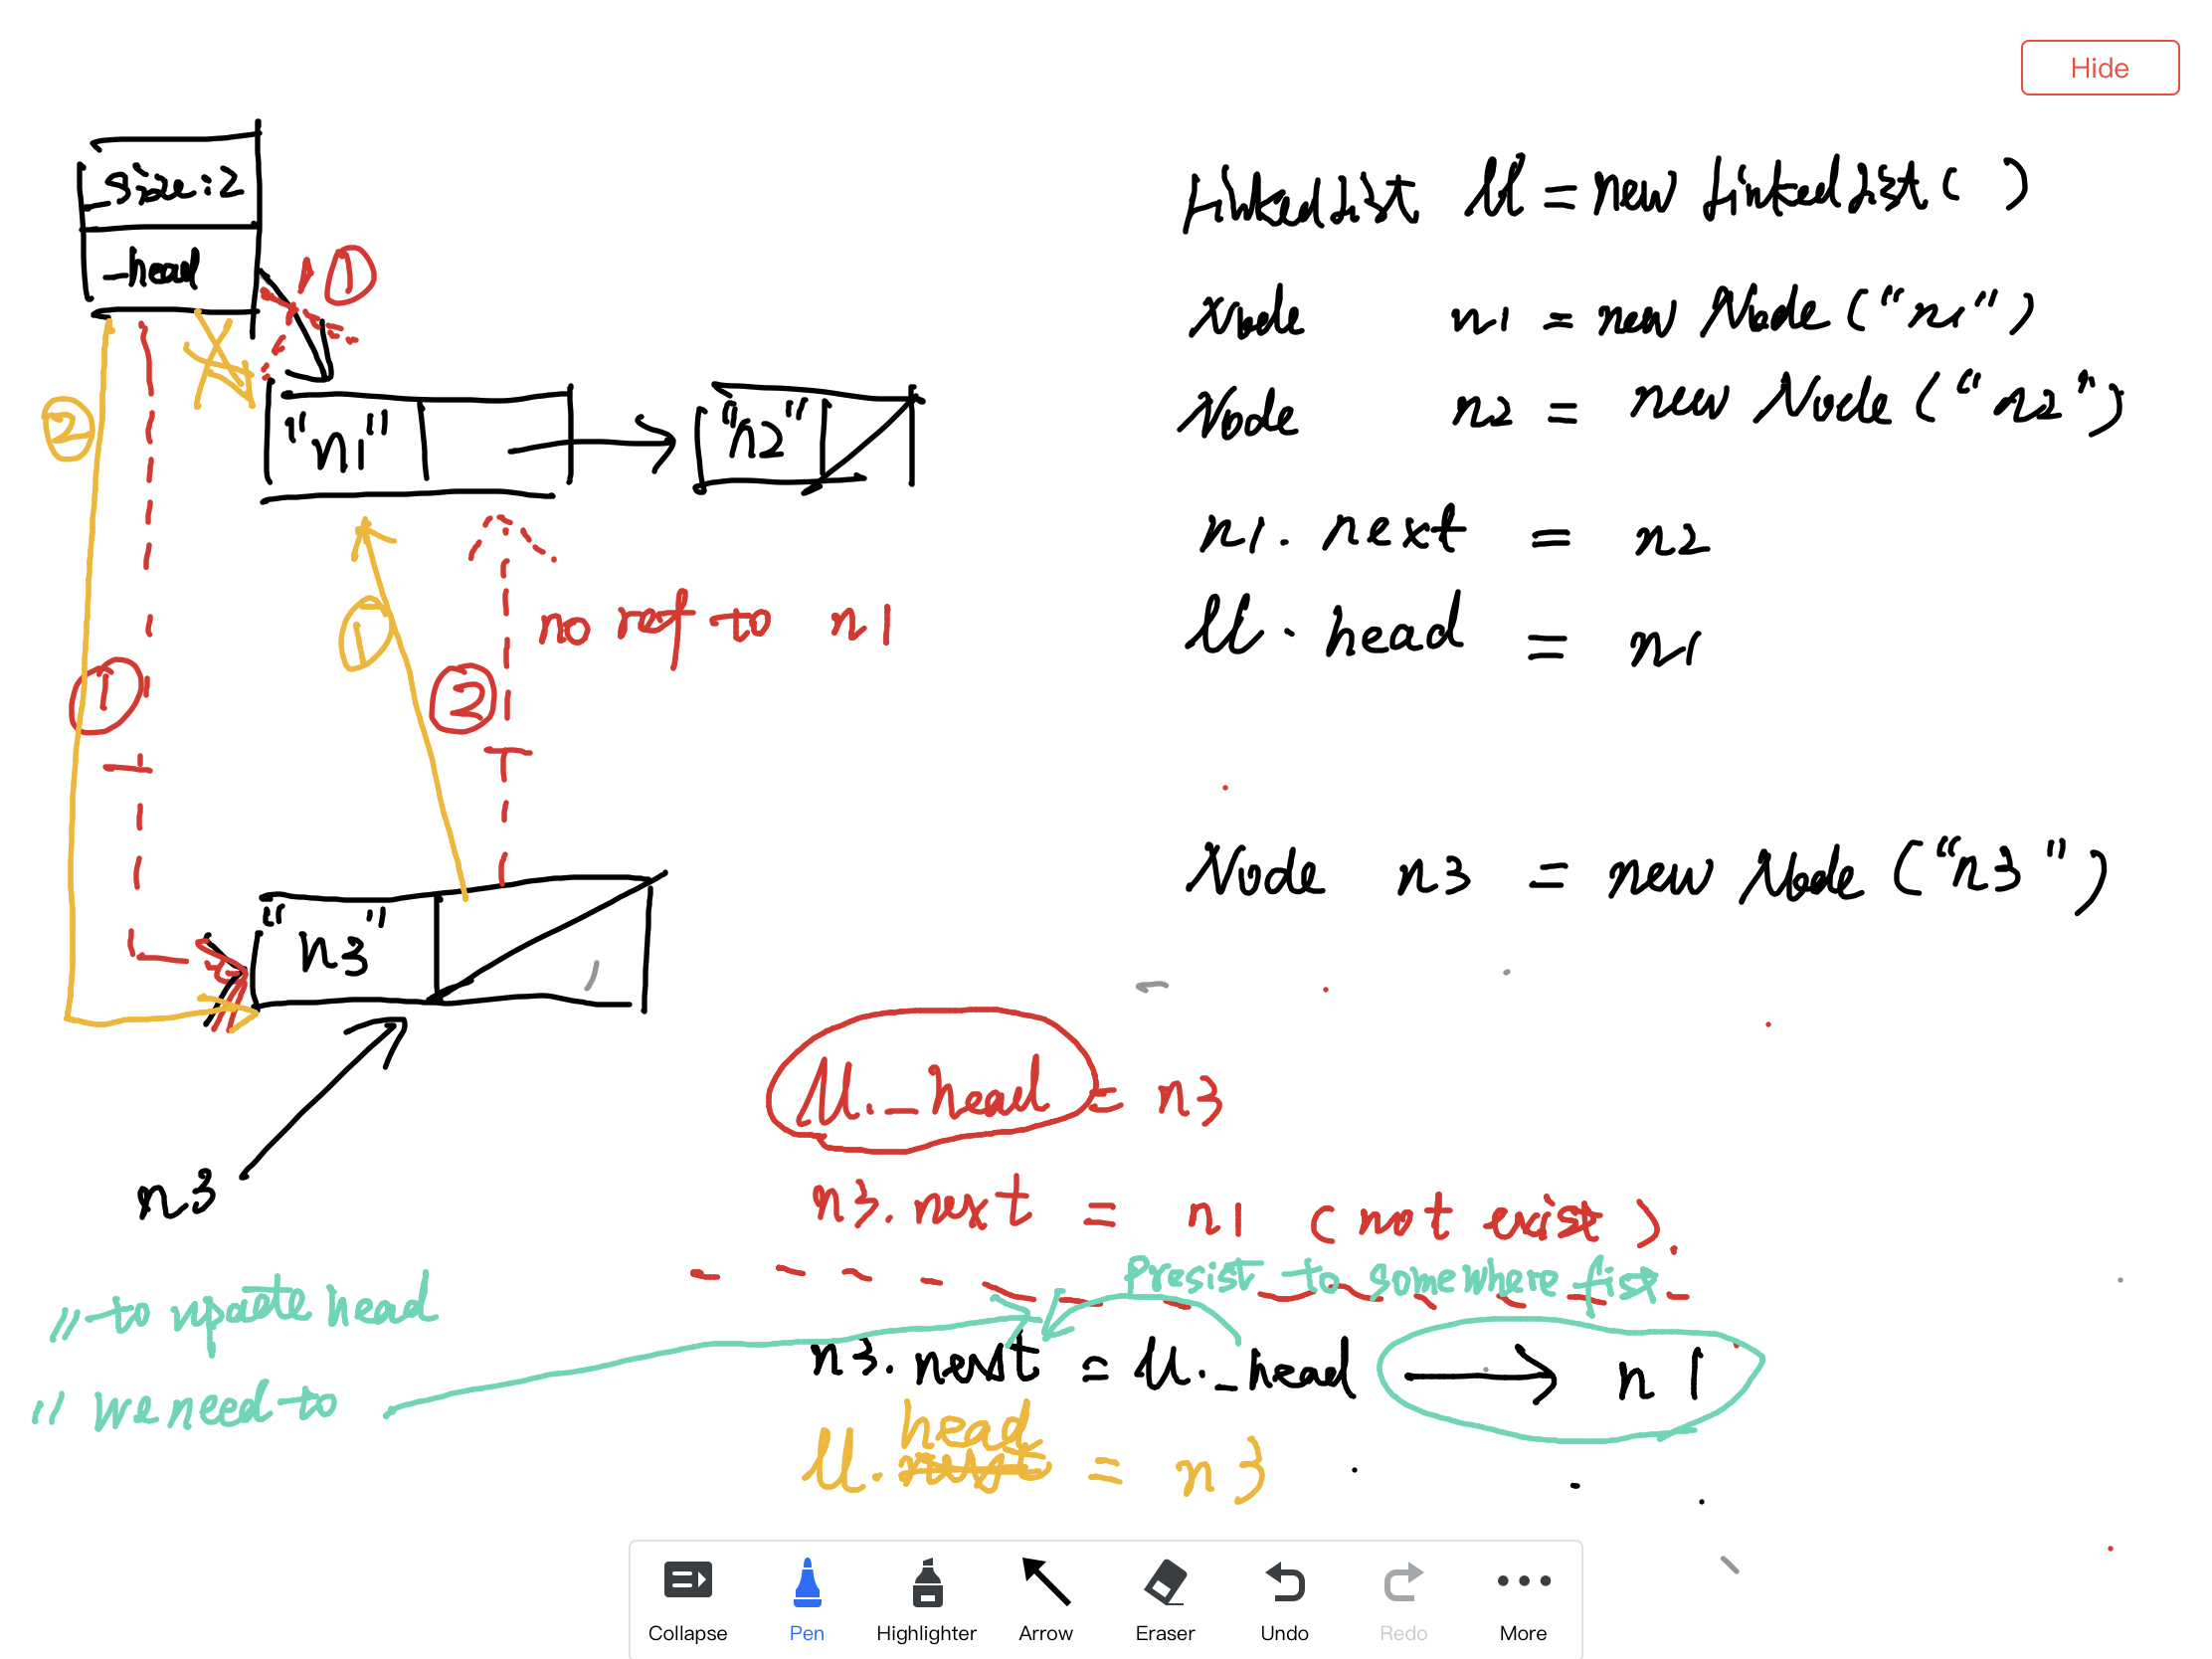 Hide
_size:2
_head
①
②
"n1"
"n2"
①
no ref to n1
①
②
"n3"
n3
LinkedList ll = new LinkedList( )
Node n1 = new Node ("n1")
Node n2 = new Node ("n2")
n1. next = n2
ll. head = n1
Node n3 = new Node ("n3")
ll._head = n3
n3.next = n1 (not exist).
Presist to somewhere fist
// to update head
n3.next = ll._head → n1
// we need to
head
ll. next = n3
Collapse
Pen
Highlighter
Arrow
Eraser
Undo
Redo
More